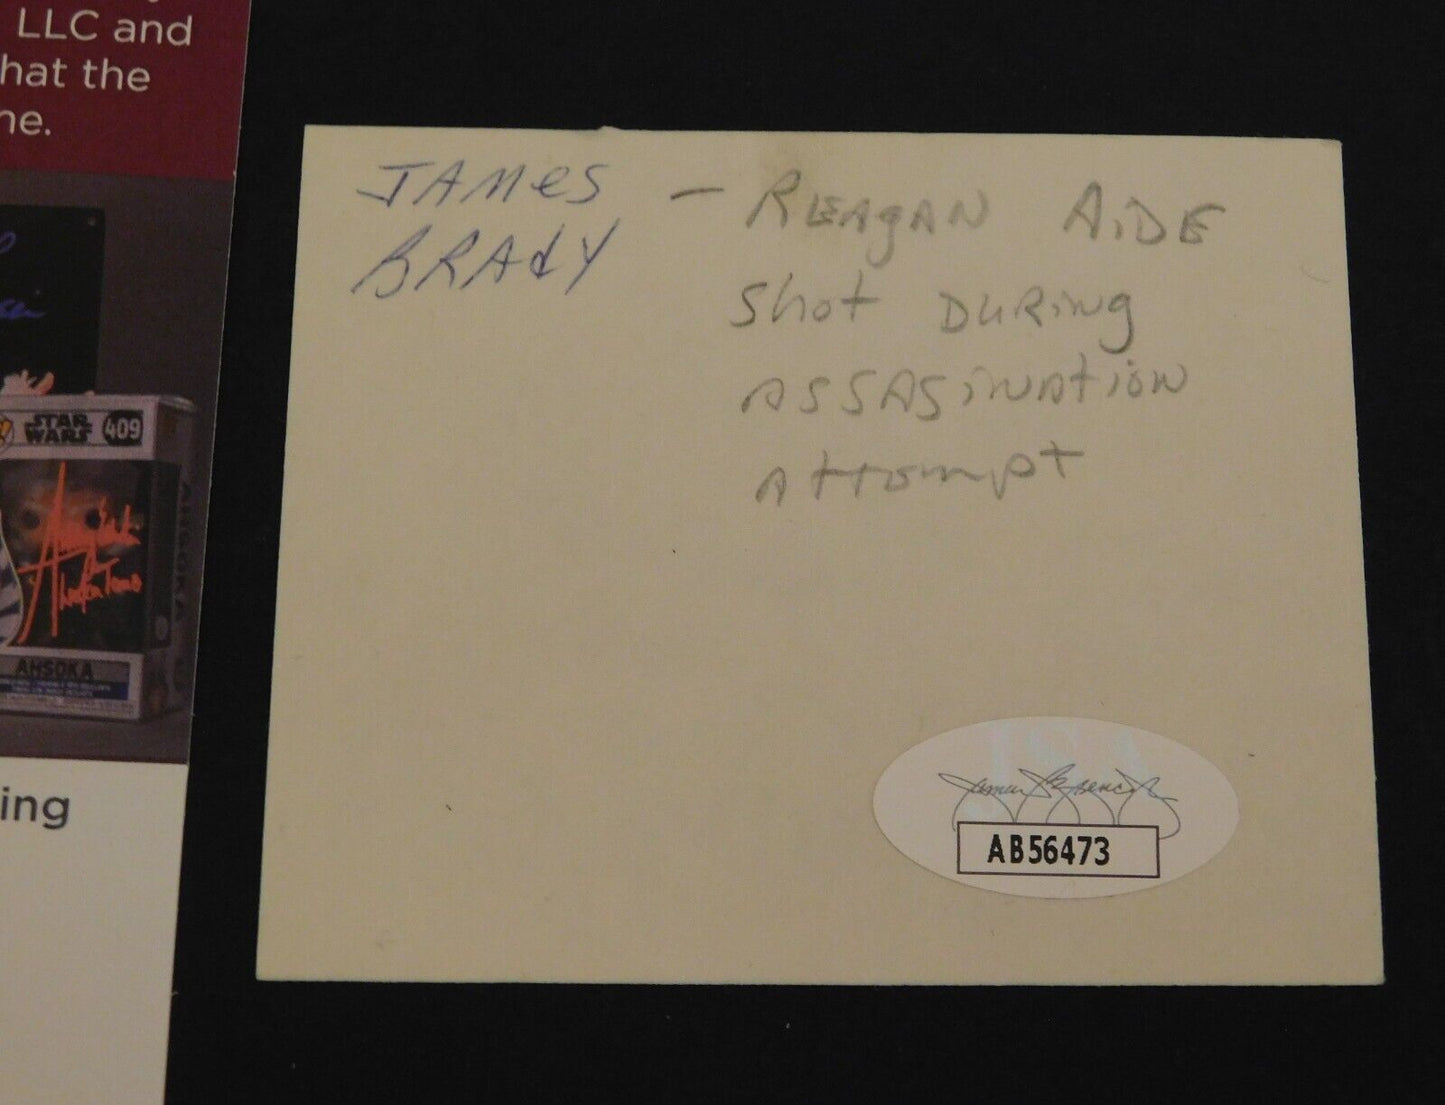 LLC and
hat the
ne.
STAR
WARS
409
Ahsoka Tano
AHSOKA
AHSOKA
ing
JAMES
BRAdY
- REAgAN AiDE
Shot DURiNg
ASSASiNAtioN
Attempt
JSA
James Spence Jr
AB56473